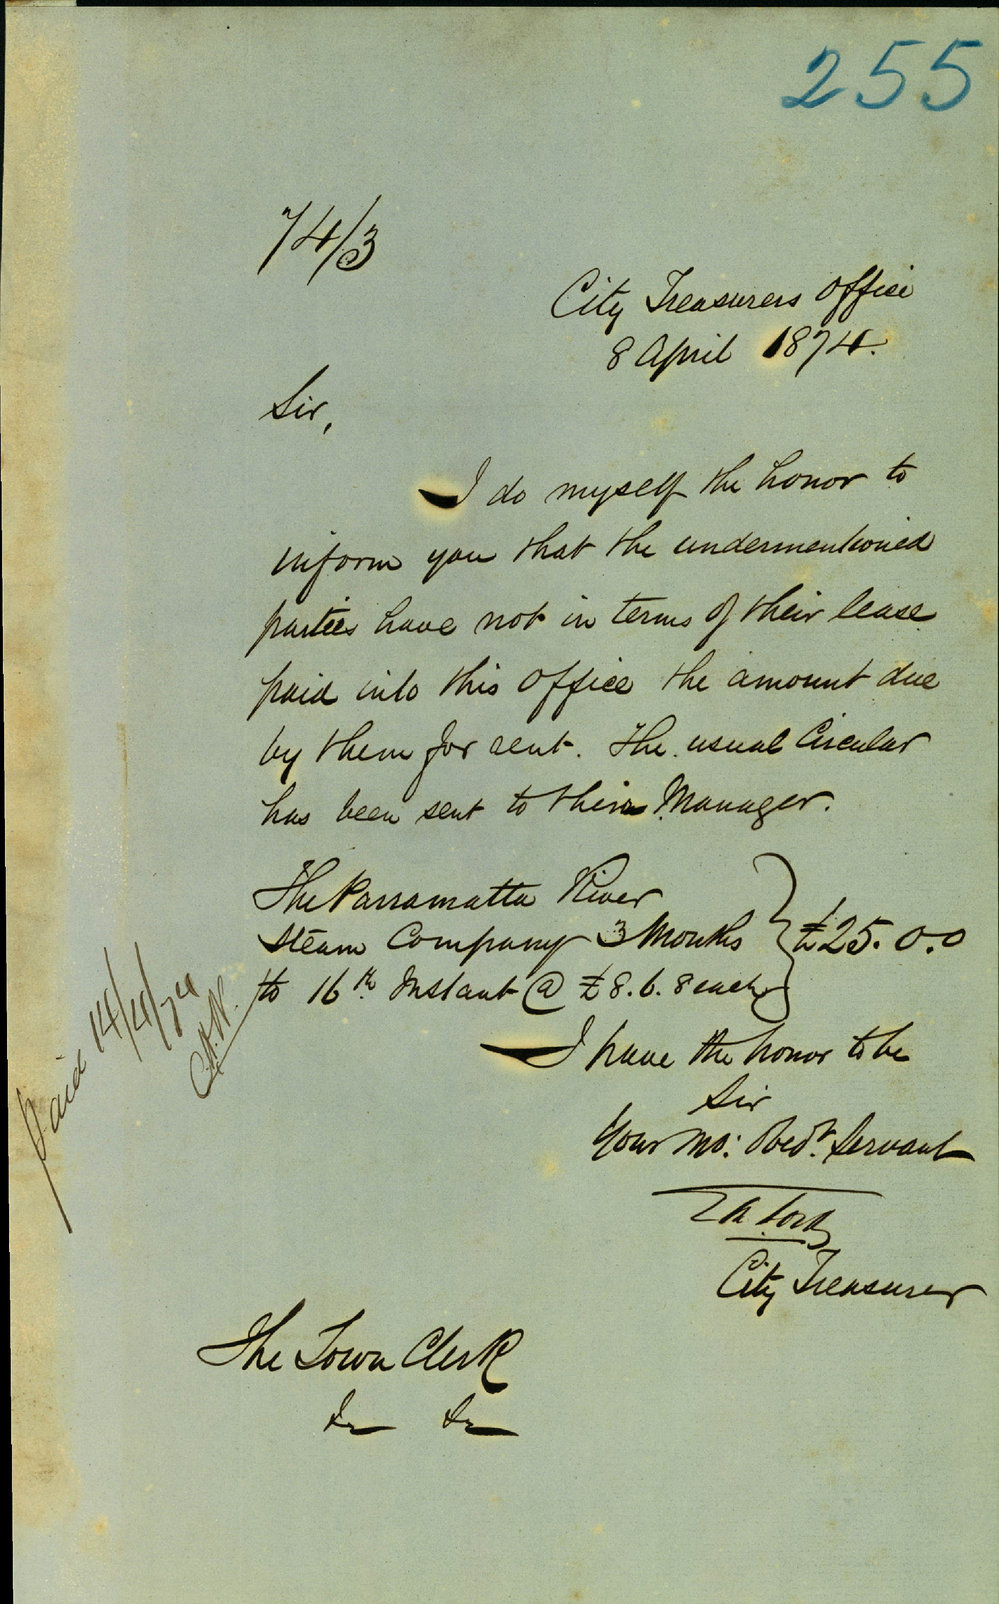 255
74/3
City Treasurers Office
8 April 1874.
Sir,
I do myself the honor to
inform you that the undermentioned
parties have not in terms of their lease
paid into this Office the amount due
by them for rent. The usual Circular
has been sent to their Manager.
The Parramatta River
Steam Company 3 Months } £25.0.0
to 16th Instant @ £8.6.8 each
I have the honor to be
Sir
Your Mo: Obedt. Servant
City Treasurer
The Town Clerk
&c &c
Paid 14/4/74